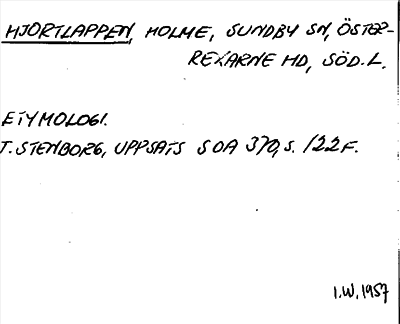 HJORTLAPPEN, HOLME, SUNDBY SN, ÖSTER-
REKARNE HD, SÖD.L.
ETYMOLOGI.
T. STENBORG, UPPSATS SOA 370, S. 122F.
I.W. 1957